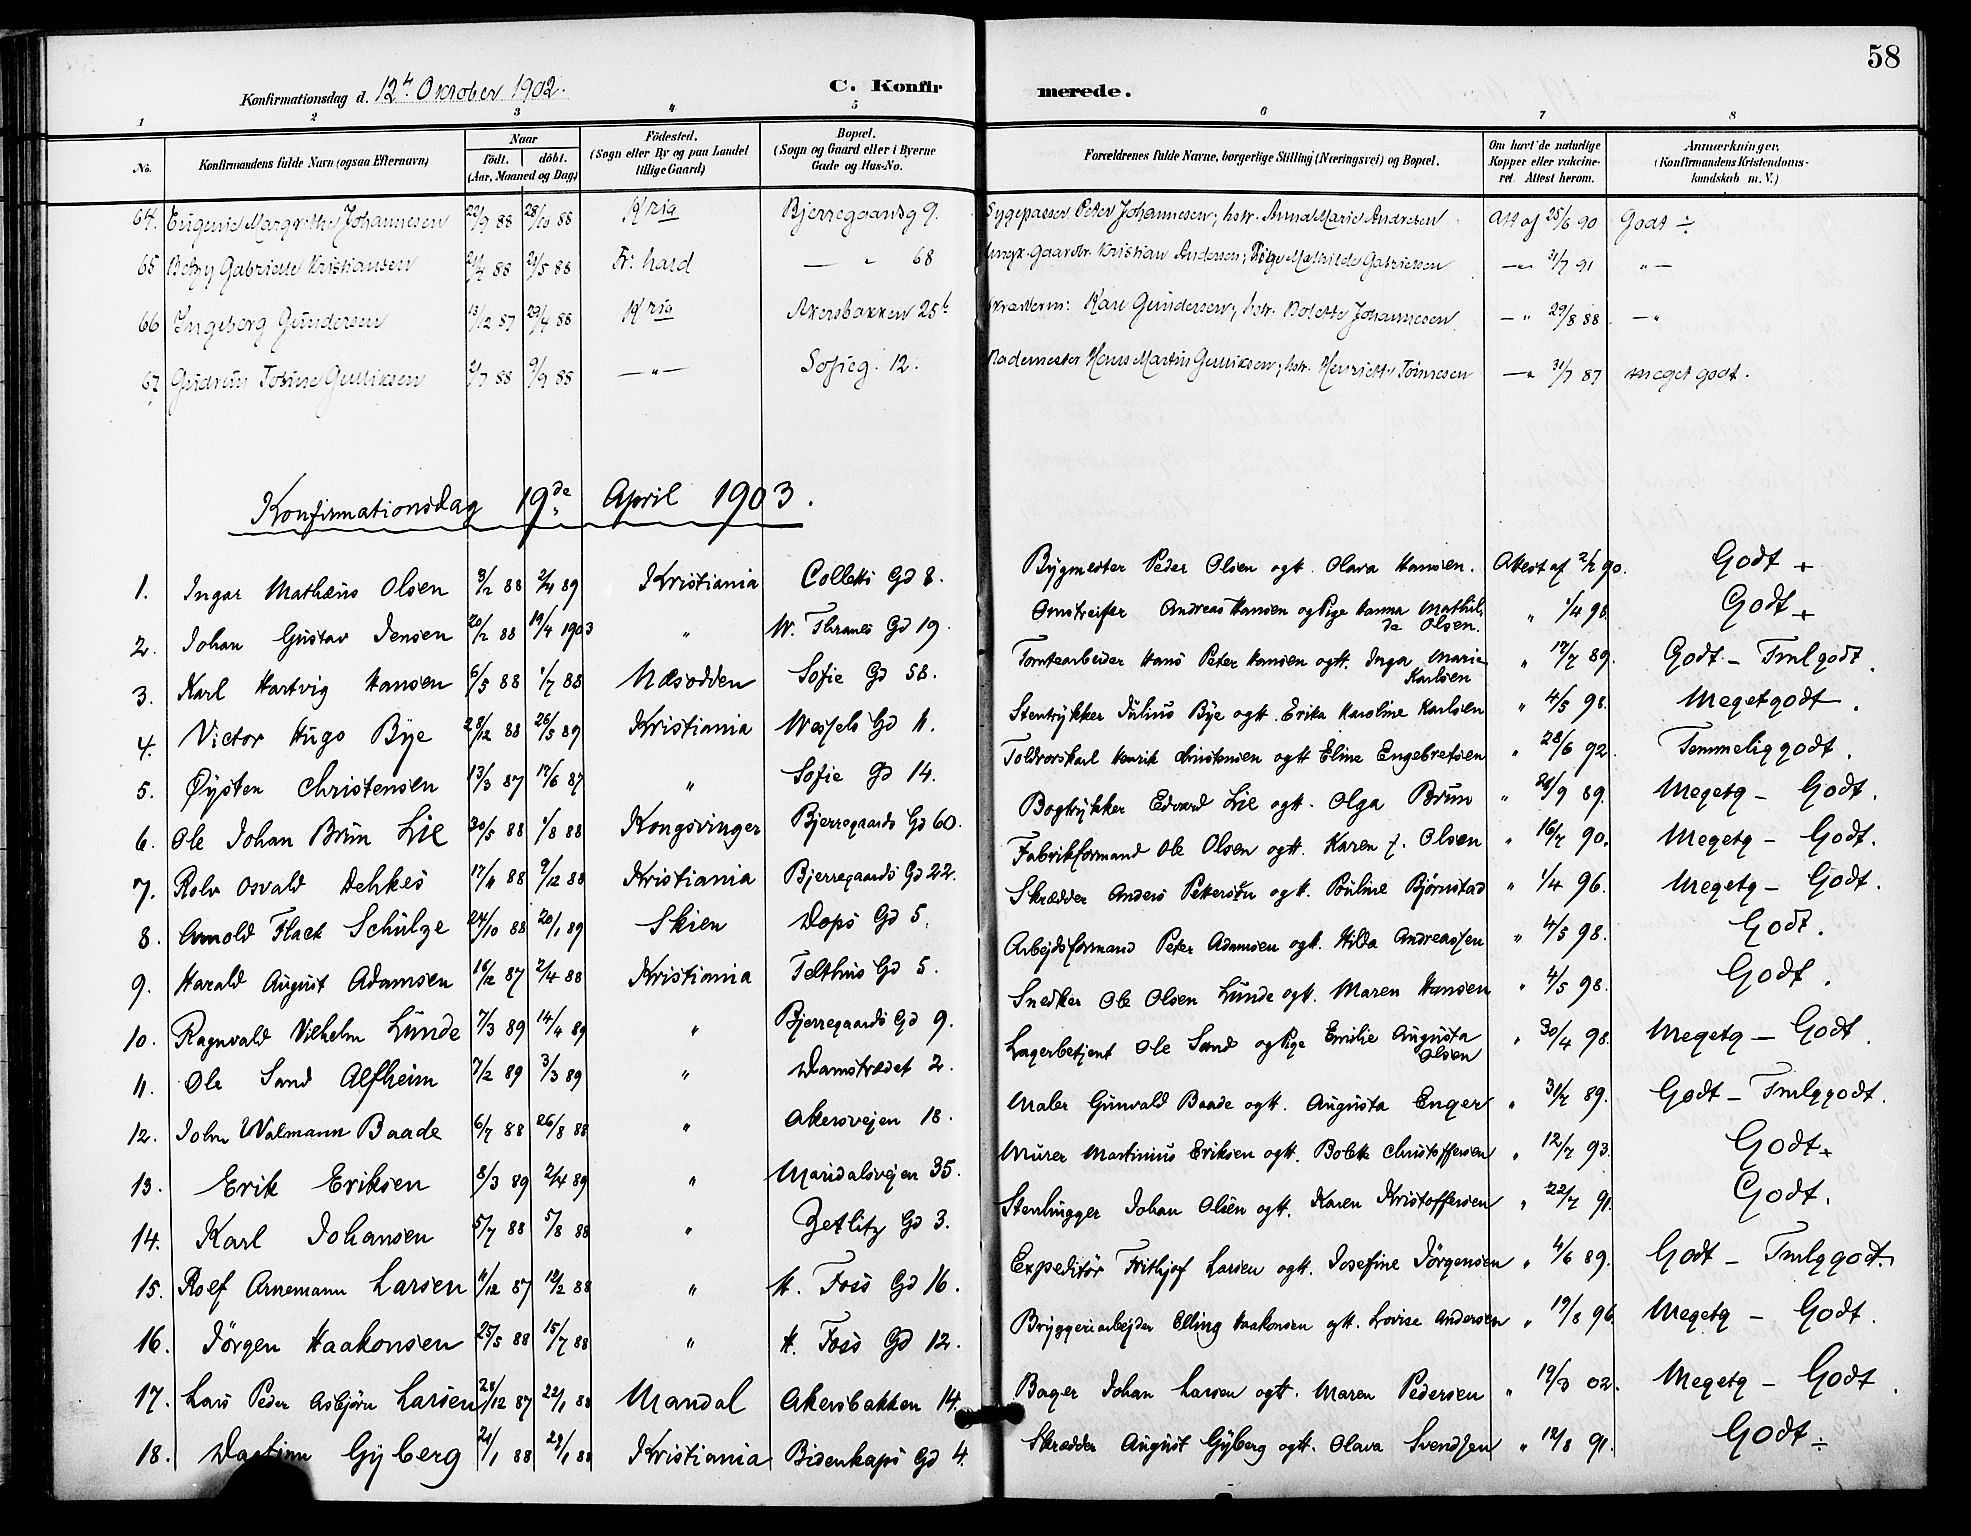 58
Konfirmationsdag d. 12te Oktober 1902. C. Konfirmerede.
1 2 3 4 5 6 7 8
No. Konfirmandens fulde Navn (ogsaa Efternavn) Naar født. døbt. (Aar, Maaned og Dag) Fødested. (Sogn eller By og paa Landet tillige Gaard) Bopæl. (Sogn og Gaard eller i Byerne Gade og Hus-No. Forældrenes fulde Navne, borgerlige Stilling (Næringsvei) og Bopæl. Om havt de naturlige Kopper eller vakcineret. Attest herom. Anmærkninger. (Konfirmandens Kristendomskundskab m. V.)
64. Eugenie Margrethe Johannesen 22/9 88 28/10 88 Kria Bjerregaardsg 9. Sygepasser Peter Johannesen; hstr. Anna Marie Andresen Att af 25/6 90 Godt ÷
65 Gabrielle Kristiansen 21/4 88 21/5 88 Fr: hald — " 68 Kristian Andersen; Pige Mathilde Gabrielsen —"— 31/7 91 " —
66 Ingeborg Gundersen 13/12 87 29/4 88 Kria Akersbakken 25b Karl Gundersen; hstr. Bolette Johannesen — " 29/8 88 — "
67. Gudrun Tobine Gulliksen 2/7 88 9/9 88 — " — Sofieg. 12. Hans Martin Gulliksen; hstr. Henriette Tönnesen — " 31/7 87 meget godt.
Konfirmationsdag 19de April 1903.
1. Ingar Mathæus Olsen 3/12 88 2/4 89 Kristiania Colletts Gd 8. Bygmester Peder Olsen ogtt. Olava Hansen. Attest af 2/2 90. Godt +
2. Johan Gustav Jensen 20/2 88 19/4 1903 " W. Thranes Gd 19. Andreas Hansen og Pige Hanna Mathilde Olsen. " 1/4 98. Godt +
3. Karl Hartvig Hansen 6/5 88 1/7 88 Næsodden Sofie Gd 58. Tomtearbeider Hans Peter Hansen ogtt. Inga Marie Karlsen " 17/7 89. Godt – Tmlgodt.
4. Victor Hugo Bye 28/12 88 26/5 89 Kristiania Wessels Gd 11. Stentrykker Julius Bye ogtt. Erika Karoline Karlsen " 4/5 98. Megetgodt.
5. Øysten Christensen 13/3 87 12/6 87 " Sofie Gd 14. Toldrorskarl Henrik Christensen ogtt Eline Engebretsen " 28/6 92. Temmeliggodt.
6. Ole Johan Brun Lie 30/5 88 1/8 88 Kongsvinger Bjerregaards Gd 60. Bogtrykker Edvard Lie ogtt. Olga Brun " 24/9 89. Megetg – Godt.
7. Rolv Osvald Dehkes 17/11 88 9/12 88 Kristiania Bjerregaards Gd 22. Fabrikformand Ole Olsen ogtt. Karen f. Olsen " 16/7 90. Megetg – Godt.
8. Arnold Flack Schulze 24/10 88 20/1 89 Skien Dops Gd 5. Skrædder Anders Pettersen ogtt. Pouline Bjørnstad " 1/4 96. Megetg – Godt.
9. Harald August Adamsen 16/12 87 2/4 88 Kristiania Telthus Gd 5. Arbeidsformand Peter Adamsen ogtt. Hilda Andreassen " 4/5 98. Godt.
10. Ragnvald Vilhelm Lunde 7/3 89 14/4 89 " Bjerregaards Gd 9. Snedker Ole Olsen Lunde ogtt. Maren Hansen " 4/5 98. Godt.
11. Ole Sand Alfheim 7/2 89 3/3 89 " Damstrædet 2. Lagerbetjent Ole Sand og Pige Emilie Augusta Olsen " 30/4 98. Megetg – Godt.
12. John Walmann Baade 6/7 88 26/8 88 " Akersvejen 18. Maler Gunvald Baade ogtt. Augusta Enger " 31/7 89. Godt – Tmlggodt.
13. Erik Eriksen 8/3 89 2/4 89 " Maridalsvejen 35. Murer Martinius Eriksen ogtt. Bolette Christoffersen " 12/7 93. Godt.
14. Karl Johansen 5/7 88 5/8 88 " Zetlitz Gd 3. Stenhugger Johan Olsen ogtt. Karen Kristoffersen " 22/7 91. Godt.
15. Rolf Arnemann Larsen 11/12 87 12/2 88 " H. Foss Gd 16. Expeditør Frithjof Larsen ogtt. Josefine Jörgensen " 4/6 89. Godt – Tmlggodt.
16. Jörgen Haakonsen 25/5 88 15/7 88 " H. Foss Gd 12. Bryggeriarbejder Elling Haakonsen ogtt. Lovise Andersen " 19/8 96. Megetg – Godt.
17. Lars Peder Asbjørn Larsen 28/12 87 22/1 88 Mandal Akersbakken 14. Bager Johan Larsen ogtt. Maren Pedersen " 19/3 02. Megetg – Godt.
18. Dagfinn Gyberg 21/1 88 29/1 88 Kristiania Bidenkaps Gd 4. Skrædder August Gyberg ogtt. Olava Svendsen " 12/8 91. Godt ÷